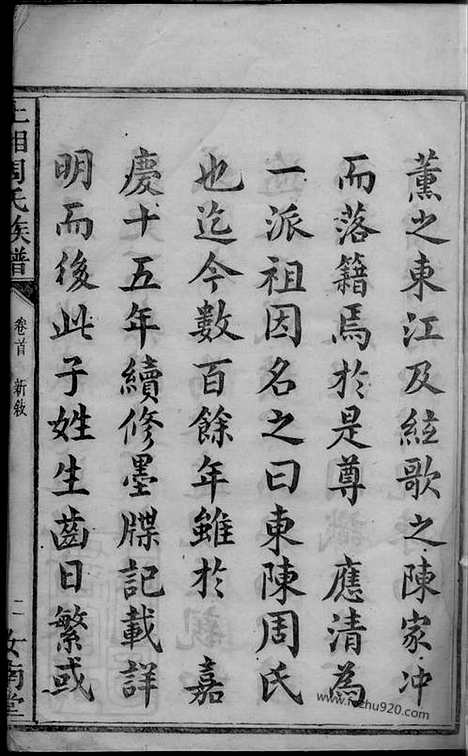 薰之東江及絃歌之陳家冲
而落籍焉於是尊　應清為
一派祖因名之曰東陳周氏
也迄今數百餘年雖於　嘉
慶十五年續修墨牒記載詳
明而後此子姓生齒日繁或
上湘周氏族譜
卷首　新敘
二
汝南堂